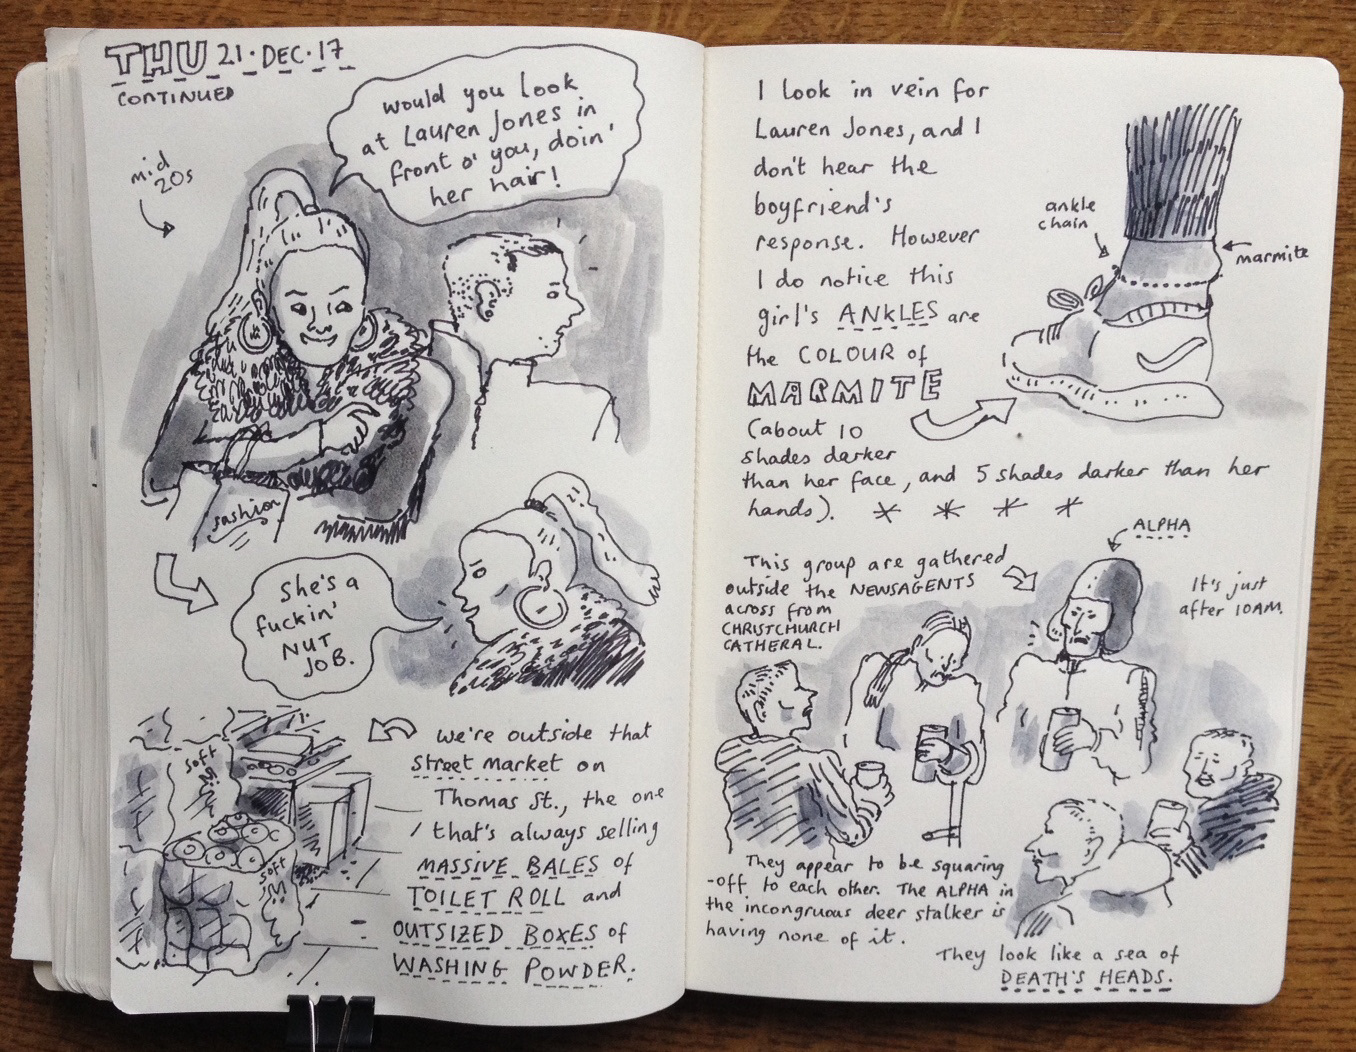 THU 21·DEC·17
CONTINUED
mid
20s
would you look
at Lauren Jones in
front o' you, doin'
her hair!
fashion
She's a
fuckin'
NUT
JOB.
we're outside that
street market on
Thomas St., the one
that's always selling
MASSIVE BALES of
TOILET ROLL and
OUTSIZED BOXES of
WASHING POWDER.
soft
M
soft
M
I look in vein for
Lauren Jones, and I
don't hear the
boyfriend's
response. However
I do notice this
girl's ANKLES are
the COLOUR of
MARMITE
(about 10
shades darker
than her face, and 5 shades darker than her
hands). * * * *
ankle
chain
marmite
This group are gathered
outside the NEWSAGENTS
across from
CHRISTCHURCH
CATHERAL.
ALPHA
It's just
after 10AM.
They appear to be squaring
-off to each other. The ALPHA in
the incongruous deer stalker is
having none of it.
They look like a sea of
DEATH'S HEADS.